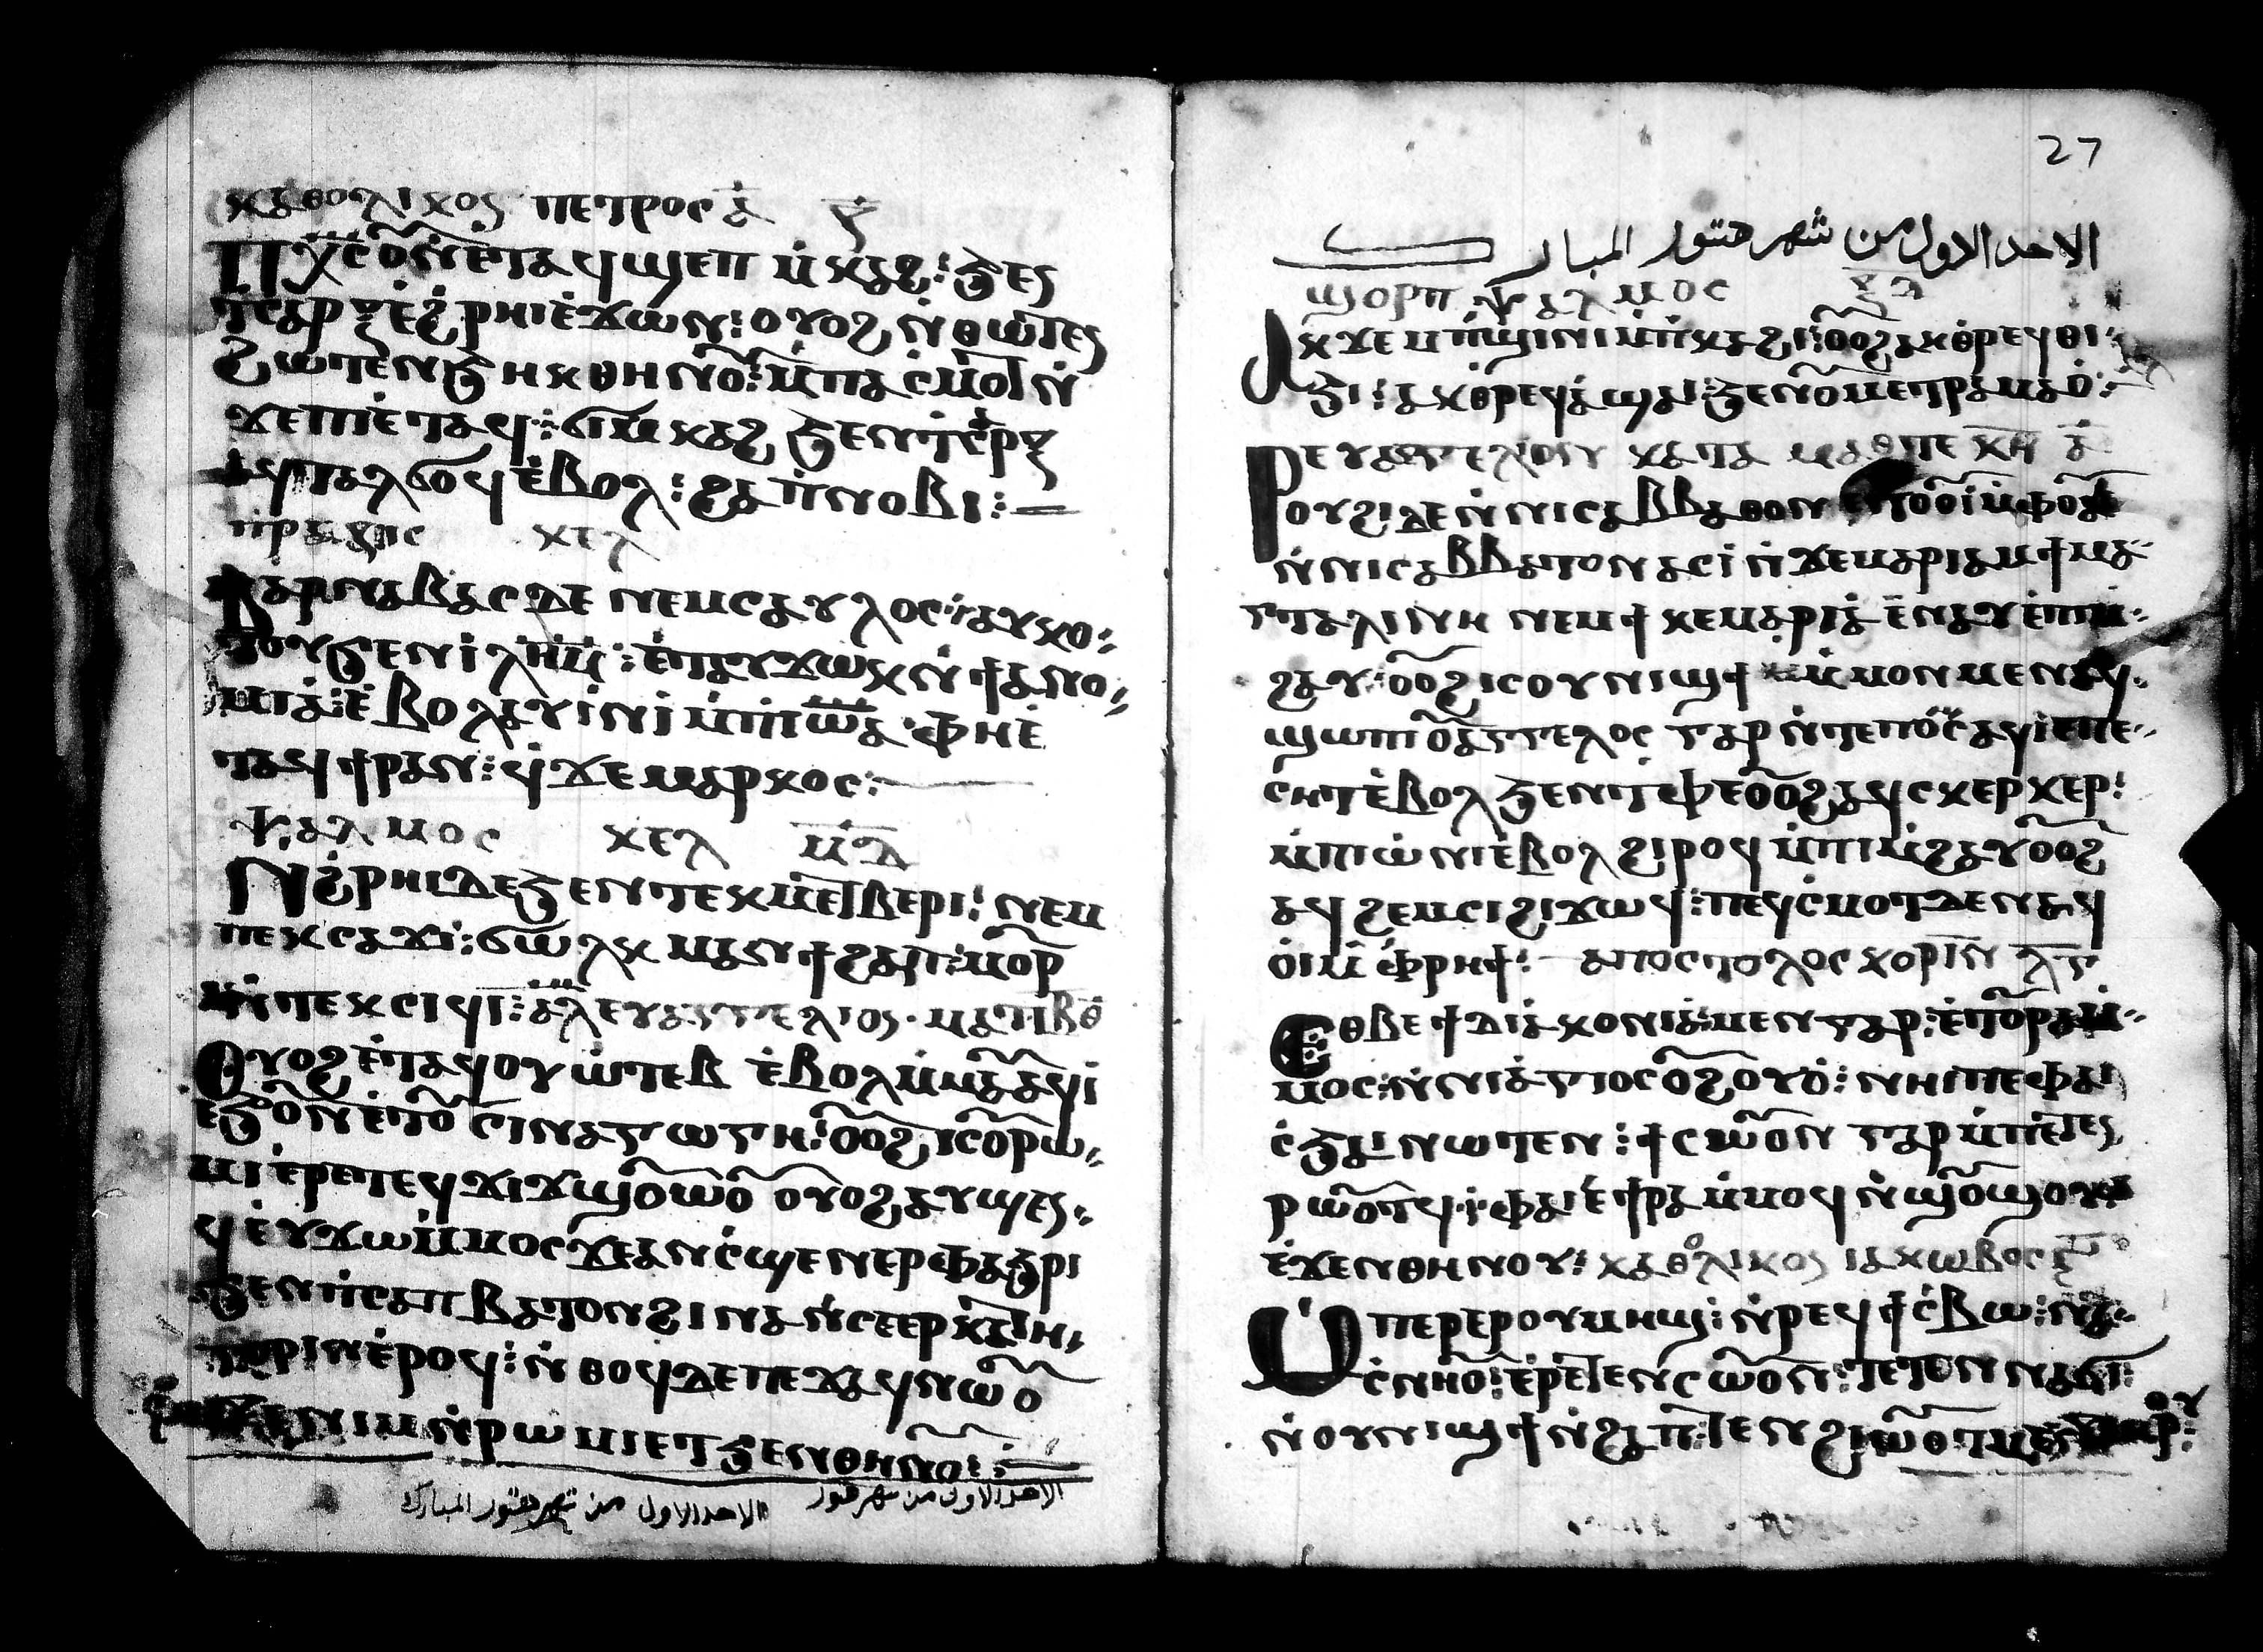 ⲕⲁⲑⲟⲗⲓⲕⲟⲥ ⲡⲉⲧⲣⲟⲥ ⲁ̄
ⲡⲭ̅ⲥ̅ ⲟⲩⲛ ⲉⲧⲁϥϣⲉⲡ ⲙ̀ⲕⲁϩ: ϧⲉⲛ
ⲧⲥⲁⲣⲝ ⲉ̀ϩ̀ⲣⲏⲓ ⲉ̀ϫⲱⲛ: ⲟⲩⲟϩ ⲛ̀ⲑⲱⲧⲉⲛ
ϩⲱⲧⲉⲛ ϧⲏⲕ ⲑⲏⲛⲟⲩ: ⲙ̀ⲡⲁⲓⲥ̀ⲙⲟⲧ ⲛ̀
ϫⲉ ⲡⲓⲉ̀ⲧⲁϥ: ϭⲓⲙ̀ⲕⲁϩ ϧⲉⲛ ⲧ̀ⲥⲁⲣⲝ
ⲁϥⲧⲁⲗϭⲟϥ ⲉ̀ⲃⲟⲗ: ϩⲁ ⲫ̀ⲛⲟⲃⲓ:
ⲡⲣⲁⲝⲓⲥ ⲕⲉⲗ
ⲃⲁⲣⲛⲁⲃⲁⲥ ⲇⲉ ⲛⲉⲙ ⲥⲁⲩⲗⲟⲥ: ⲁⲩⲕⲟ
ⲧⲟⲩ ϧⲉⲛ ⲓ̅ⲗ̅ⲏ̅ⲙ̅: ⲉ̀ⲧⲁⲩϫⲱⲕ ⲛ̀ϯⲇⲓⲁⲕⲟ
ⲛⲓⲁ: ⲉ̀ⲃⲟⲗ ⲁⲩⲓ̀ⲛⲓ ⲙ̀ⲡⲓⲱⲁ ⲫⲏⲉ̀
ⲧⲁⲩϯⲣⲁⲛ: ϥ ϫⲉ ⲙⲁⲣⲕⲟⲥ:
ⲯⲁⲗⲙⲟⲥ ⲕⲉⲗ ⲙ̅ⲇ̅
ⲛ̀ϩ̀ⲣⲏⲓ ⲇⲉ ϧⲉⲛ ⲧⲉⲕⲙⲉⲧⲃⲉⲣⲓ: ⲛⲉⲙ
ⲡⲉⲕⲥⲁⲓ: ϭⲱⲗⲕ ⲙⲁⲛϯϩⲁⲡ: ⲙⲟⲣ
ⲛ̀ⲧⲉⲕⲥⲏϥⲓ: ⲁⲗ ⲉⲩⲁⲅⲅⲉⲗⲓⲟⲥ ⲙⲁⲧ ⲓ̅ⲃ̅ ⲑ̅
ⲟⲩⲟϩ ⲉ̀ⲧⲁϥⲟⲩⲱ̀ⲧⲉⲃ ⲉ̀ⲃⲟⲗ ⲙ̀ⲙⲁⲩ ⲁϥⲓ̀
ⲉϧⲟⲩⲛ ⲉ̀ⲧⲟⲩⲥⲓⲛⲁⲅⲱⲅⲏ: ⲟⲩⲟϩ ⲓⲥ ⲟⲩⲣⲱ
ⲙⲓ ⲉ̀ⲣⲉ ⲧⲉϥϫⲓϫ ϣⲟⲩⲱⲟⲩ ⲟⲩⲟϩ ⲁⲩϣⲉⲛ
ϥ ⲉⲩϫⲱ ⲙ̀ⲙⲟⲥ ϫⲉ ⲁⲛ ⲥ̀ϣⲉ ⲛⲉⲣⲫⲁϧⲣⲓ
ϧⲉⲛ ⲡ̀ⲥⲁⲡⲃⲁⲧⲟⲛ ϩⲓⲛⲁ ⲛ̀ⲥⲉⲉⲣⲕⲁⲧⲏ
ⲅⲟⲣⲓⲛ ⲉ̀ⲣⲟϥ: ⲛ̀ⲑⲟϥ ⲇⲉ ⲡⲉϫⲁϥ ⲛⲱⲟⲩ
ϫⲉ ⲛⲓⲙ ⲛ̀ⲣⲱⲙⲓ ⲉⲧϧⲉⲛ ⲑⲏⲛⲟⲩ:
الاحد الاول من شهر هتور الاحد الاول من شهر هتور المبارك
27
الاحد الاول من شهر هتور المبارك
ϣⲟⲣⲡ ⲯⲁⲗⲙⲟⲥ ⲝ̅ⲇ̅
ⲁⲕϫⲉⲙⲡ̀ϣⲓⲛⲓ ⲙ̀ⲡⲕⲁϩⲓ: ⲟⲩⲟϩ ⲁⲕⲑⲣⲉϥⲑⲓ
ϧⲓ: ⲁⲕⲑⲣⲉϥⲁ̀ϣⲁⲓ: ϧⲉⲛ ⲟⲩⲙⲉⲧⲣⲁⲙⲁⲟ̀:
ⲉⲩⲁⲅⲅⲉⲗⲓⲟⲛ ⲕⲁⲧⲁ ⲙⲁⲑⲑⲉ ⲕ̅ⲏ̅ ⲁ̅
ⲣⲟⲩϩⲓ ⲇⲉ ⲛ̀ⲛⲓⲥⲁⲃⲃⲁⲑⲟⲛ ⲉⲧⲟⲟⲩⲓ̀ ⲙ̀ⲫⲟⲩⲁⲓ
ⲛ̀ⲛⲓⲥⲁⲃⲃⲁⲧⲟⲛ ⲁⲥⲓ̀ ⲛ̀ϫⲉ ⲙⲁⲣⲓⲁⲙ ϯⲙⲁ
ⲅⲧⲁⲗⲓⲛⲏ ⲛⲉⲙ ϯⲕⲉⲙⲁⲣⲓⲁ ⲉ̀ⲛⲁⲩ ⲉ̀ⲡⲓⲙ̀
ϩⲁⲩ: ⲟⲩⲟϩ ⲓⲥ ⲟⲩⲛⲓϣϯ ⲙ̀ⲙⲟⲛⲙⲉⲛ ⲁϥ
ϣⲱⲡⲓ ⲟⲩⲁⲅⲅⲉⲗⲟⲥ ⲅⲁⲣ ⲛ̀ⲧⲉ ⲡⲟ̅ⲥ̅ ⲁϥⲓ̀ ⲉ̀ⲡⲉ
ⲥⲏⲧ ⲉ̀ⲃⲟⲗ ϧⲉⲛ ⲧ̀ⲫⲉ ⲟⲩⲟϩ ⲁϥⲥⲕⲉⲣⲕⲉⲣ:
ⲙ̀ⲡⲓⲱ̀ⲛⲓ ⲉ̀ⲃⲟⲗ ϩⲓⲣⲟϥ ⲙ̀ⲡⲓⲙ̀ϩⲁⲩ ⲟⲩⲟϩ
ⲁϥϩⲉⲙⲥⲓ ϩⲓϫⲱϥ: ⲡⲉϥⲥ̀ⲙⲟⲧ ⲇⲉ ⲛⲁϥ
ⲟⲓ ⲙ̀ⲫ̀ⲣⲏϯ: ⲁⲡⲟⲥⲧⲟⲗⲟⲥ ⲕⲟⲣⲓⲛ ⲗ̅ⲅ̅
ⲉⲑⲃⲉ ϯⲇⲓⲁⲕⲟⲛⲓⲁ: ⲙⲉⲛ ⲅⲁⲣ: ⲉ̀ⲧⲟⲩⲣⲁ ⲙ̀
ⲙⲟⲥ: ⲛ̀ⲛⲓⲁⲅⲓⲟⲥ ⲟⲩϩⲟⲩⲟ̀: ⲛⲏⲓ ⲡⲉ ⲫⲁⲓ
ⲥ̀ϧⲁⲓ ⲛⲱⲧⲉⲛ: ϯⲥⲱⲟⲩⲛ ⲅⲁⲣ ⲙ̀ⲡⲉⲧⲉⲛ
ⲣⲱⲟⲩⲧϥ: ⲫⲁⲓ ⲉ̀ϯⲣⲁ ⲙ̀ⲙⲟϥ ⲛ̀ϣⲟⲩϣⲟⲩ
ⲉ̀ϫⲉⲛ ⲑⲏⲛⲟⲩ: ⲕⲁⲑⲟⲗⲓⲕⲟⲥ ⲓⲁⲕⲱⲃⲟⲥ ⲅ̅
ⲙ̀ⲡⲉⲣⲉⲣⲟⲩⲙⲏϣ: ⲛ̀ⲣⲉϥϯⲥ̀ⲃⲱ: ⲛⲁ
ⲥ̀ⲛⲏⲟⲩ: ⲉ̀ⲣⲉⲧⲉⲛⲥⲱⲟⲩⲛ: ⲧⲉⲧⲉⲛⲛⲁϭⲓ:
ⲛ̀ⲟⲩⲛⲓϣϯ ⲛ̀ϩⲁⲡ: ⲧⲉⲛϩⲓⲱⲟⲩⲧ